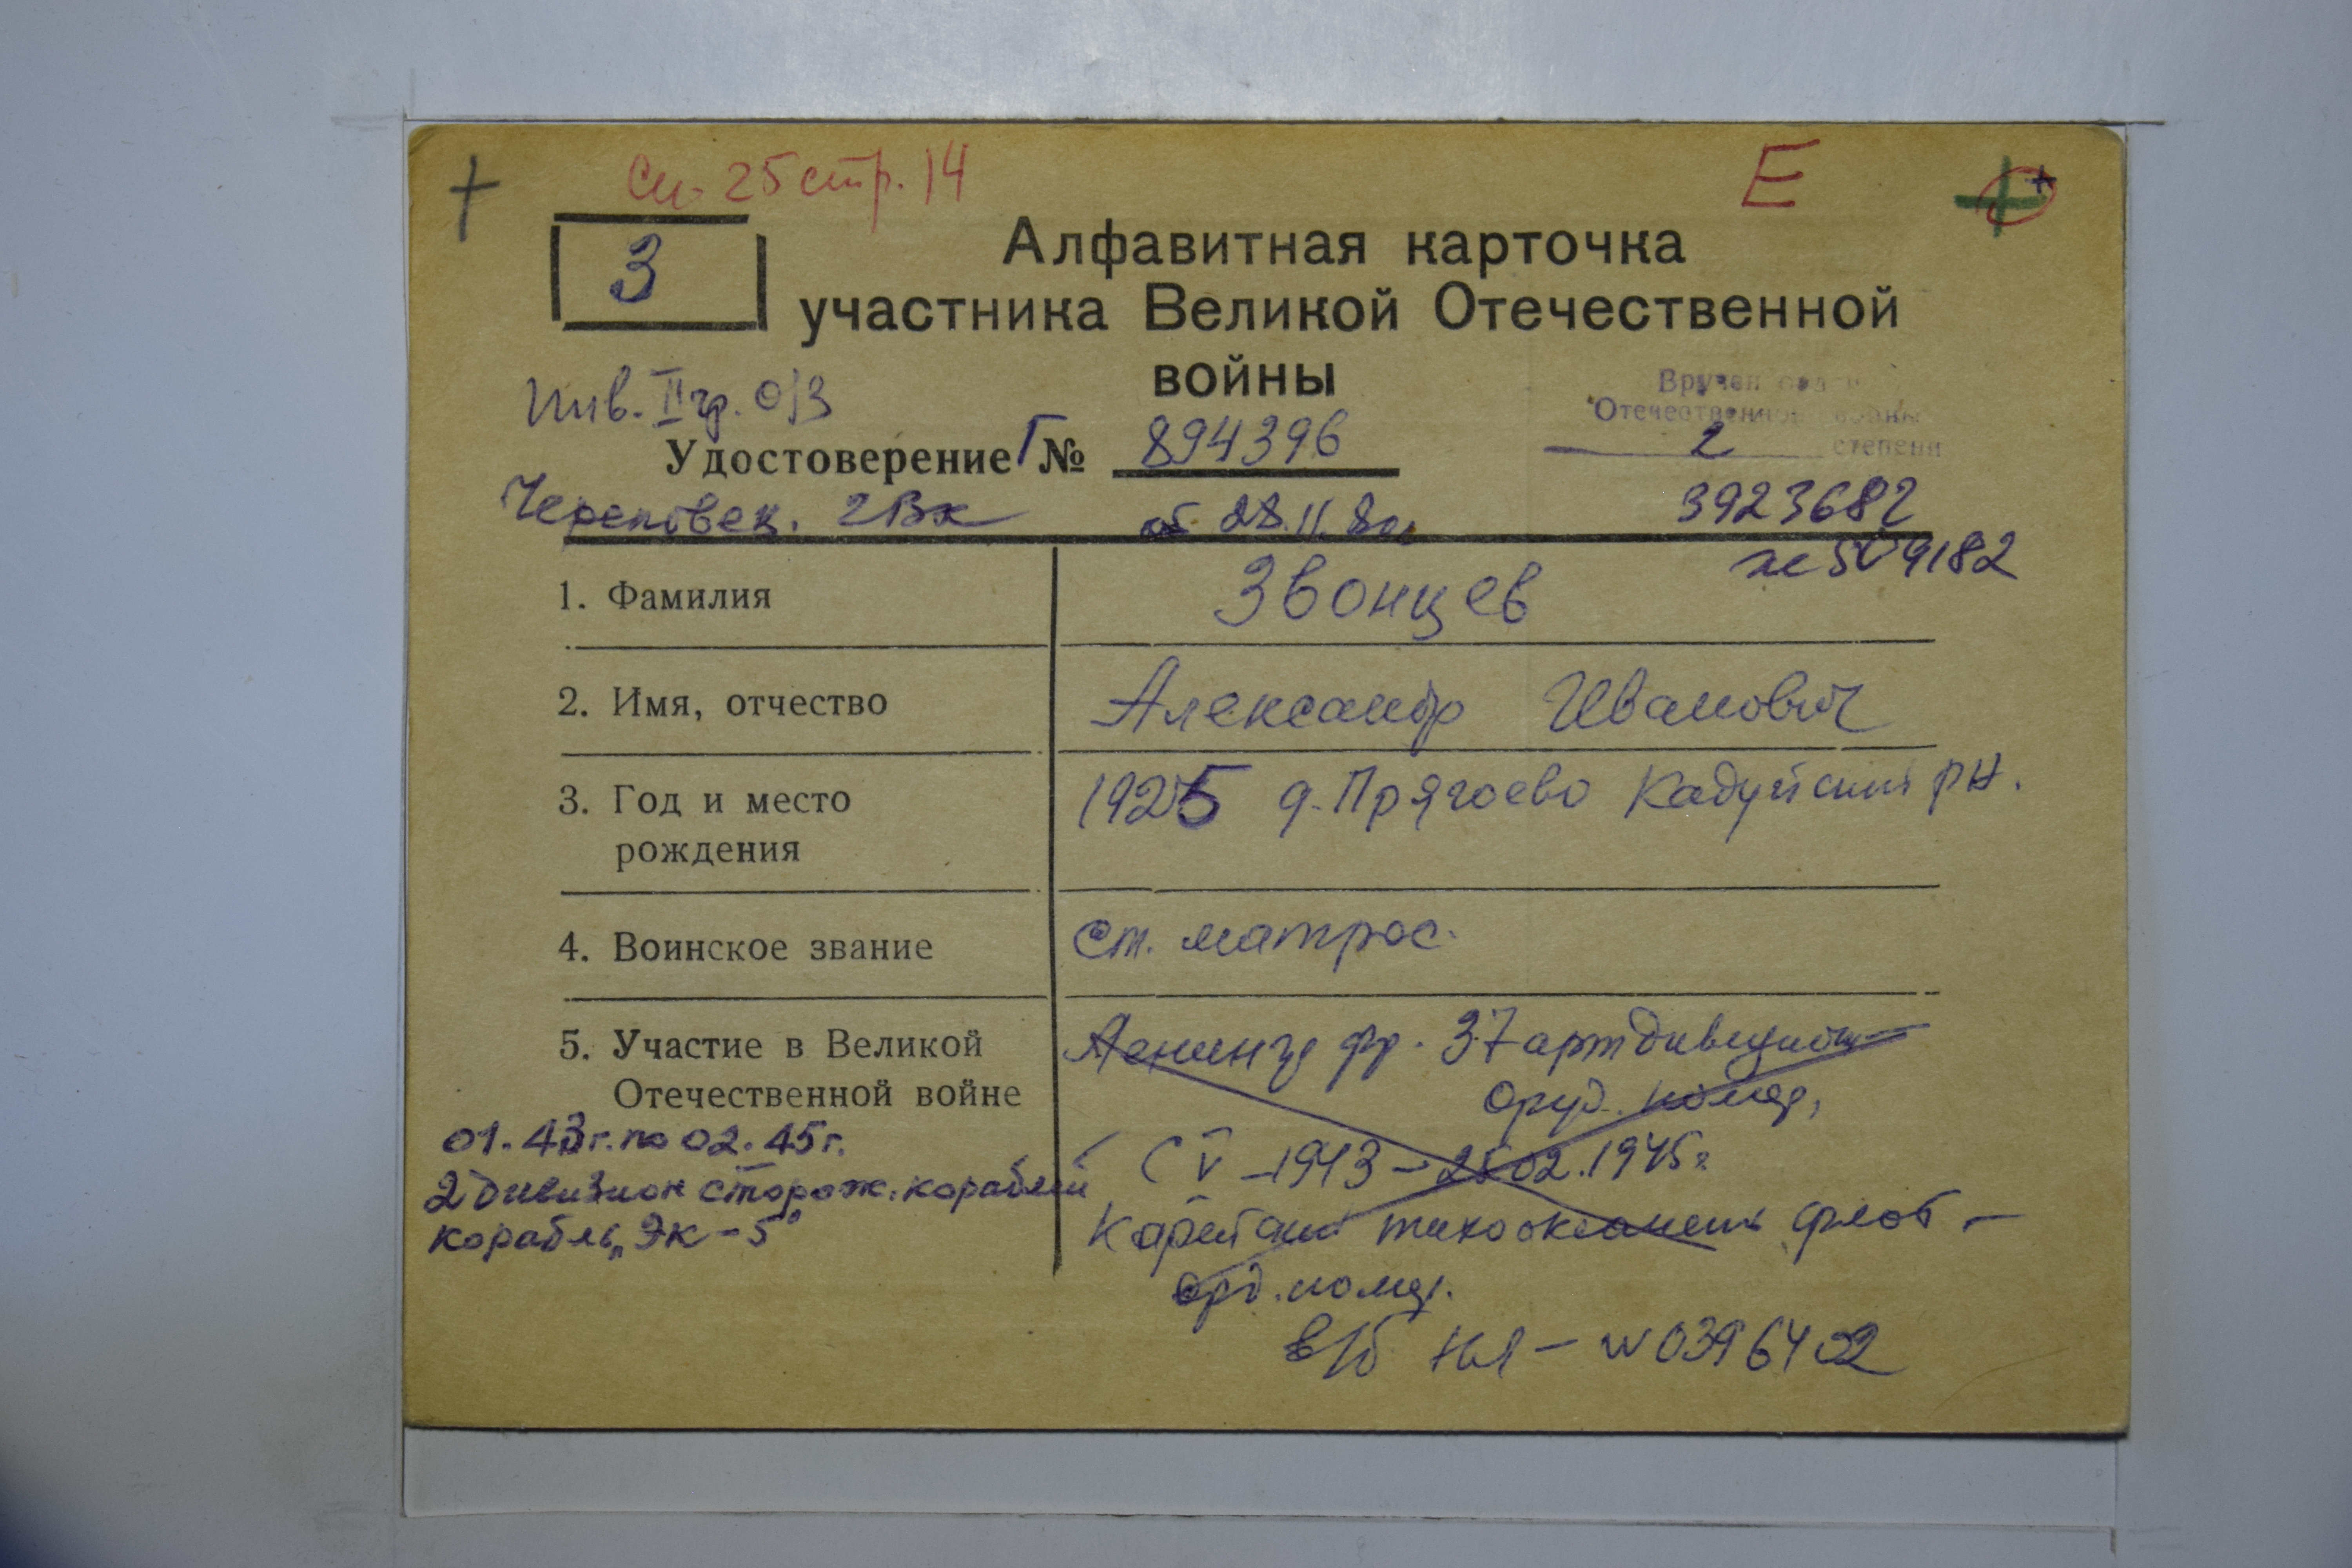 +
Сп. 25 стр. 14
Е
З
Алфавитная карточка
участника Великой Отечественной
войны
Инв. II гр. о/з
Вручен орден
Отечественной войны
2 степени
Удостоверение Г № 894396
3923682
Череповец. ГВК от 28.11.80г
№ 509182
1. Фамилия Звонцев
2. Имя, отчество Александр Иванович
3. Год и место
рождения
1925 д. Прягоево Кадуйский рн.
4. Воинское звание ст. матрос.
5. Участие в Великой
Отечественной войне
Ленингр фр. 37 артдивизион
оруд. номер,
С V - 1943 - 25.02.1945г
тихоокеанск флот -
орд. номер.
в/б НЯ - № 0396402
01.43г. по 02.45г.
2 дивизион сторож. кораблей
корабль „ЭК-5"